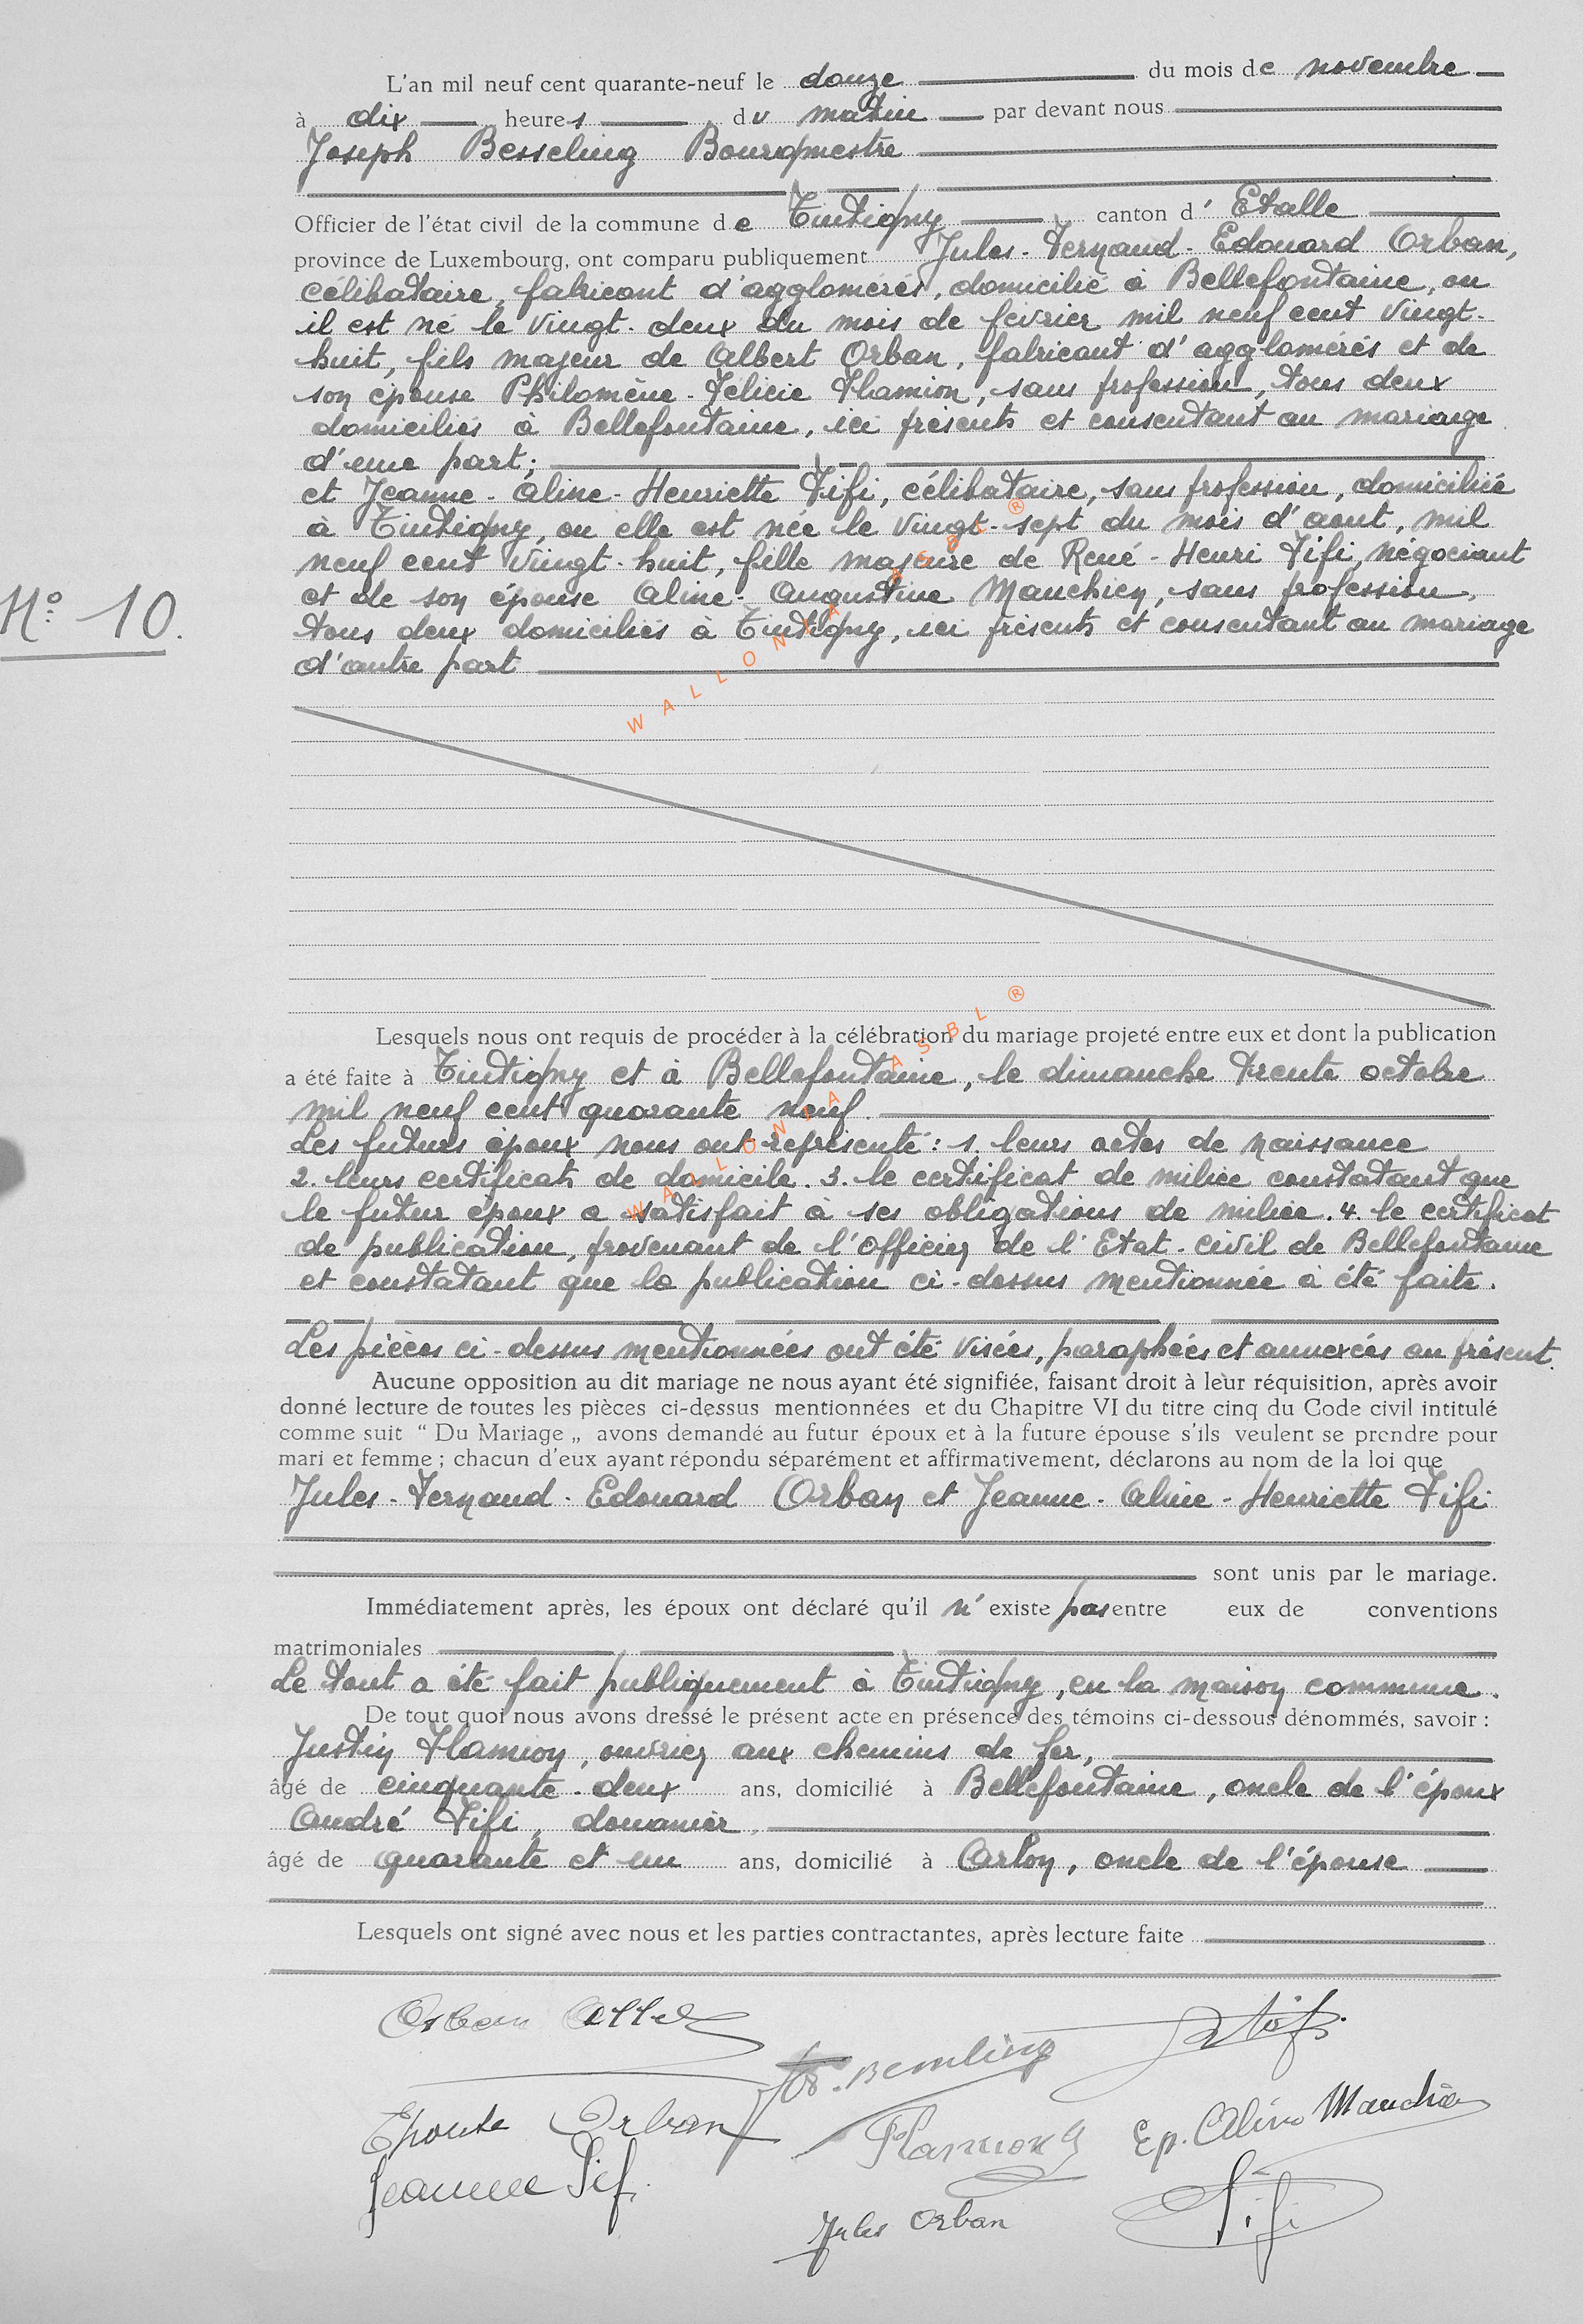 L'an mil neuf cent quarante-neuf le douze du mois de novembre
à dix heures du matin par devant nous
Joseph Besseling Bourgmestre
Officier de l'état civil de la commune de Tintigny canton d' Etalle
province de Luxembourg, ont comparu publiquement Jules-Fernand-Edouard Orban,
célibataire, fabricant d'agglomérés, domicilié à Bellefontaine, ou
il est né le vingt-deux du mois de février mil neuf cent vingt-
huit, fils majeur de Albert Orban, fabricant d'agglomérés et de
son épouse Philomène-Félicie Flamion, sans profession, tous deux
domiciliés à Bellefontaine, ici présents et consentant au mariage
d'une part;
et Jeanne-Aline-Henriette Fifi, célibataire, sans profession, domiciliée
N° 10.
à Tintigny, ou elle est née le vingt-sept du mois d'aout, mil
neuf cent vingt-huit, fille majeure de René-Henri Fifi, négociant
et de son épouse Aline-Augustine Manchien, sans profession,
tous deux domiciliés à Tintigny, ici présents et consentant au mariage
d'autre part
WALLONIA ASBL ®
Lesquels nous ont requis de procéder à la célébration du mariage projeté entre eux et dont la publication
a été faite à Tintigny et à Bellefontaine, le dimanche trente octobre
mil neuf cent quarante neuf.
Les futurs époux nous ont représenté: 1. leurs actes de naissance
2. leurs certificats de domicile. 3. le certificat de milice constatant que
le futur époux a satisfait à ses obligations de milice. 4. le certificat
de publication, provenant de l'officier de l'Etat-civil de Bellefontaine
et constatant que la publication ci-dessus mentionnée à été faite.
WALLONIA ASBL ®
Les pièces ci-dessus mentionnées ont été visées, paraphées et annexées au présent.
Aucune opposition au dit mariage ne nous ayant été signifiée, faisant droit à leur réquisition, après avoir
donné lecture de toutes les pièces ci-dessus mentionnées et du Chapitre VI du titre cinq du Code civil intitulé
comme suit “ Du Mariage „ avons demandé au futur époux et à la future épouse s'ils veulent se prendre pour
mari et femme ; chacun d'eux ayant répondu séparément et affirmativement, déclarons au nom de la loi que
Jules-Fernand-Edouard Orban et Jeanne-Aline-Henriette Fifi
sont unis par le mariage.
Immédiatement après, les époux ont déclaré qu'il n' existe pas entre eux de conventions
matrimoniales
Le tout a été fait publiquement à Tintigny, en la maison commune.
De tout quoi nous avons dressé le présent acte en présence des témoins ci-dessous dénommés, savoir :
Justin Flamion, ouvrier aux chemins de fer,
âgé de cinquante-deux ans, domicilié à Bellefontaine, oncle de l'époux
André Fifi, douanier,
âgé de quarante et un ans, domicilié à Arlon, oncle de l'épouse
Lesquels ont signé avec nous et les parties contractantes, après lecture faite
Orban Albert
Jos. Besseling
Epouse Orban
Flamion
Ep. Aline Manchien
Jeanne Fifi
Jules Orban
Fifi